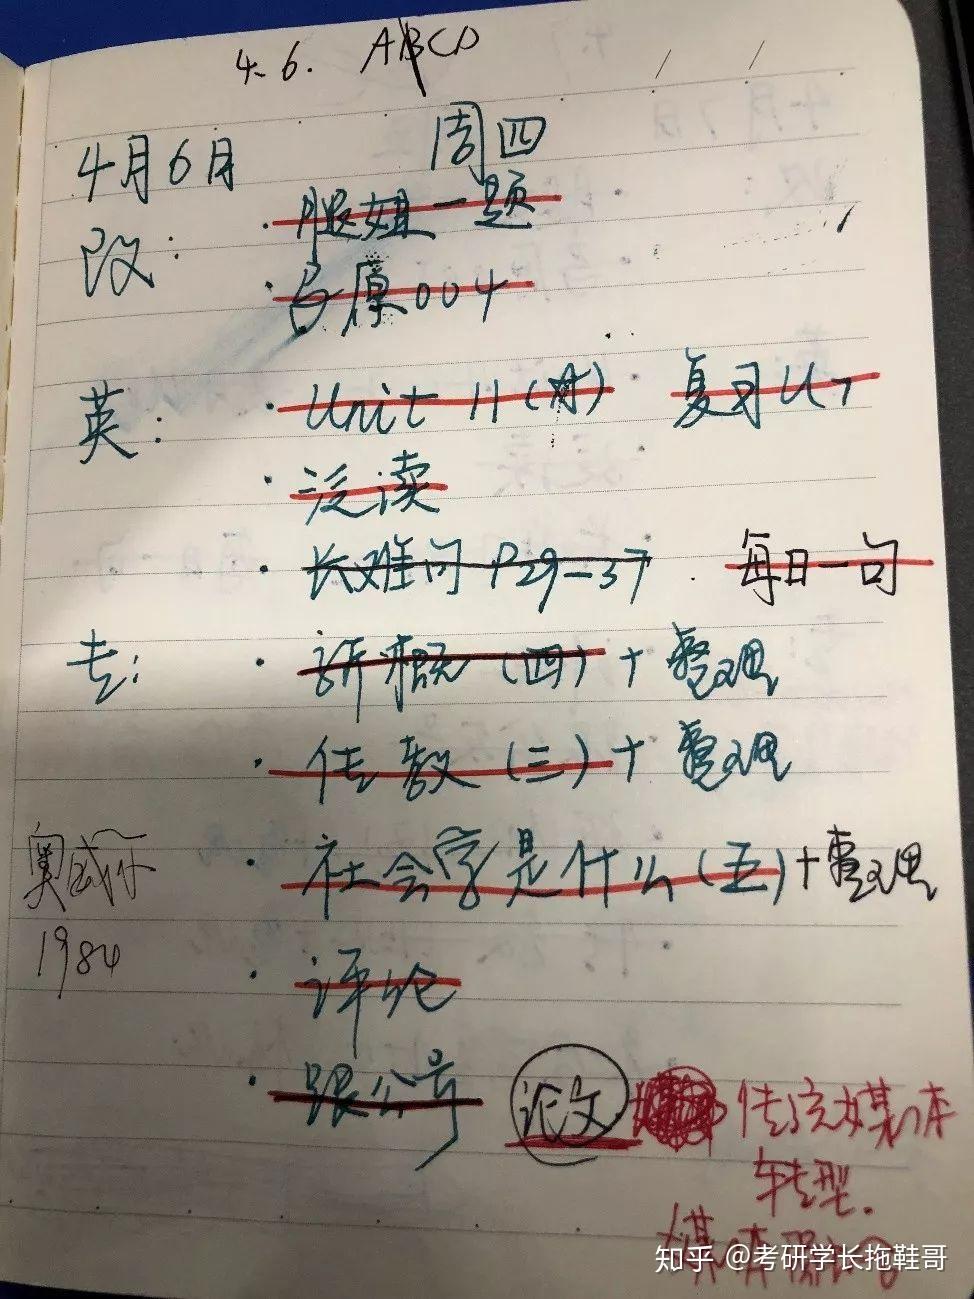 4.6. ABCD
4月6日 周四
政: · 腿姐一题
· 马原004
英: · Unit 11 (A) 复习U7
· 泛读
· 长难句 P29-37 . 每日一句
专: · 新概(四)+整理
· 传教(三)+整理
奥威尔 · 社会学是什么(五)+整理
1984
· 评论
· 跟公号 论文 传统媒体
转型.
媒体
知乎 @考研学长拖鞋哥